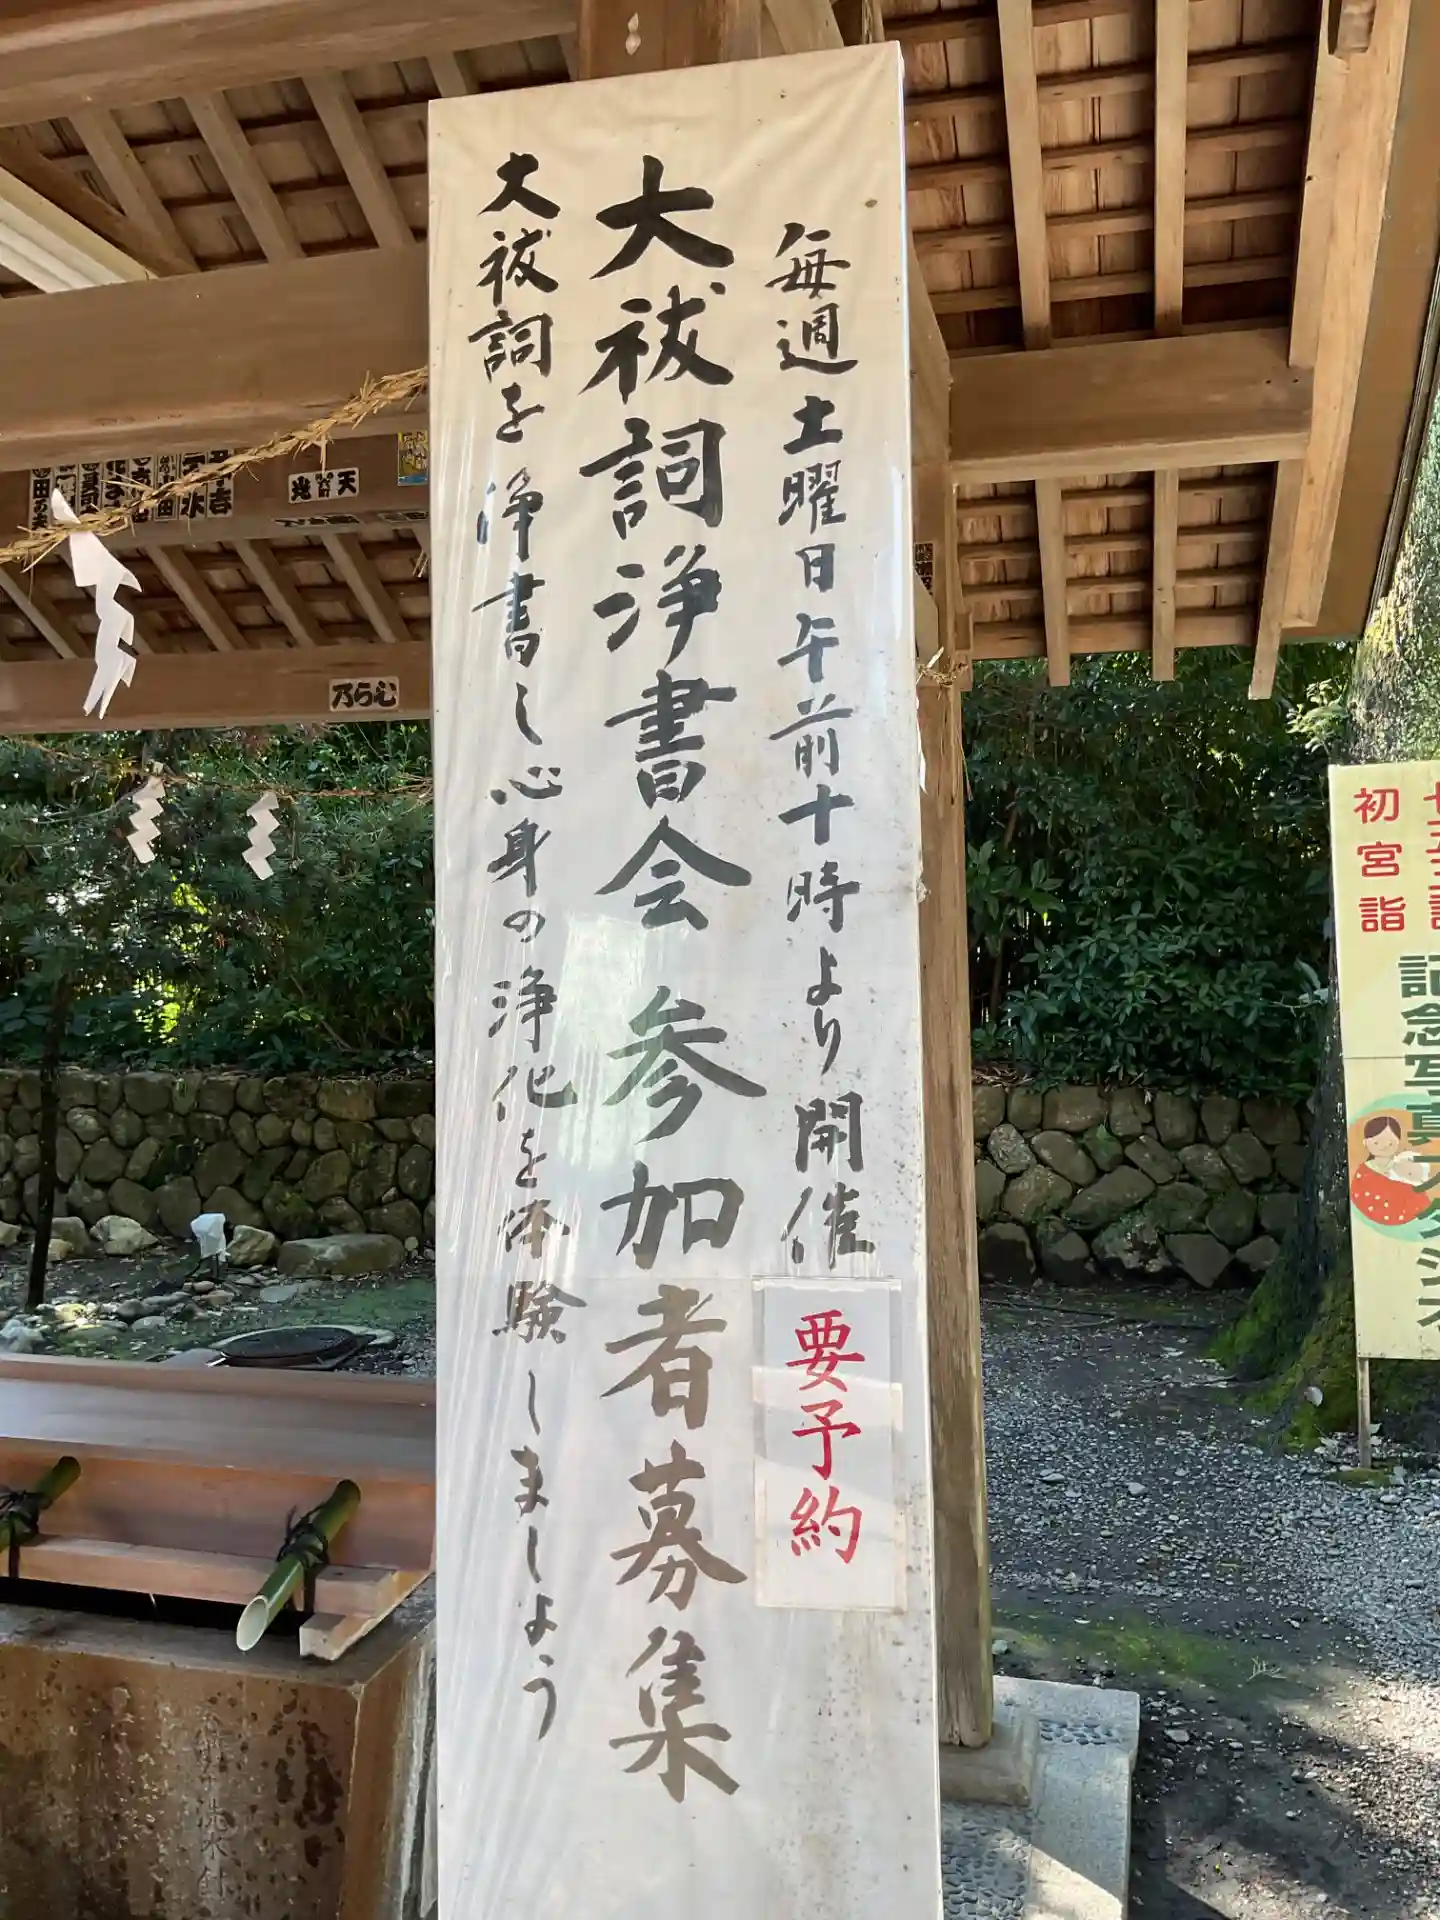 毎週土曜日午前十時より開催
要予約
大祓詞浄書会 参加者募集
大祓詞を浄書し心身の浄化を体験しましょう
初宮詣
記念写真スタジオ
むら乃